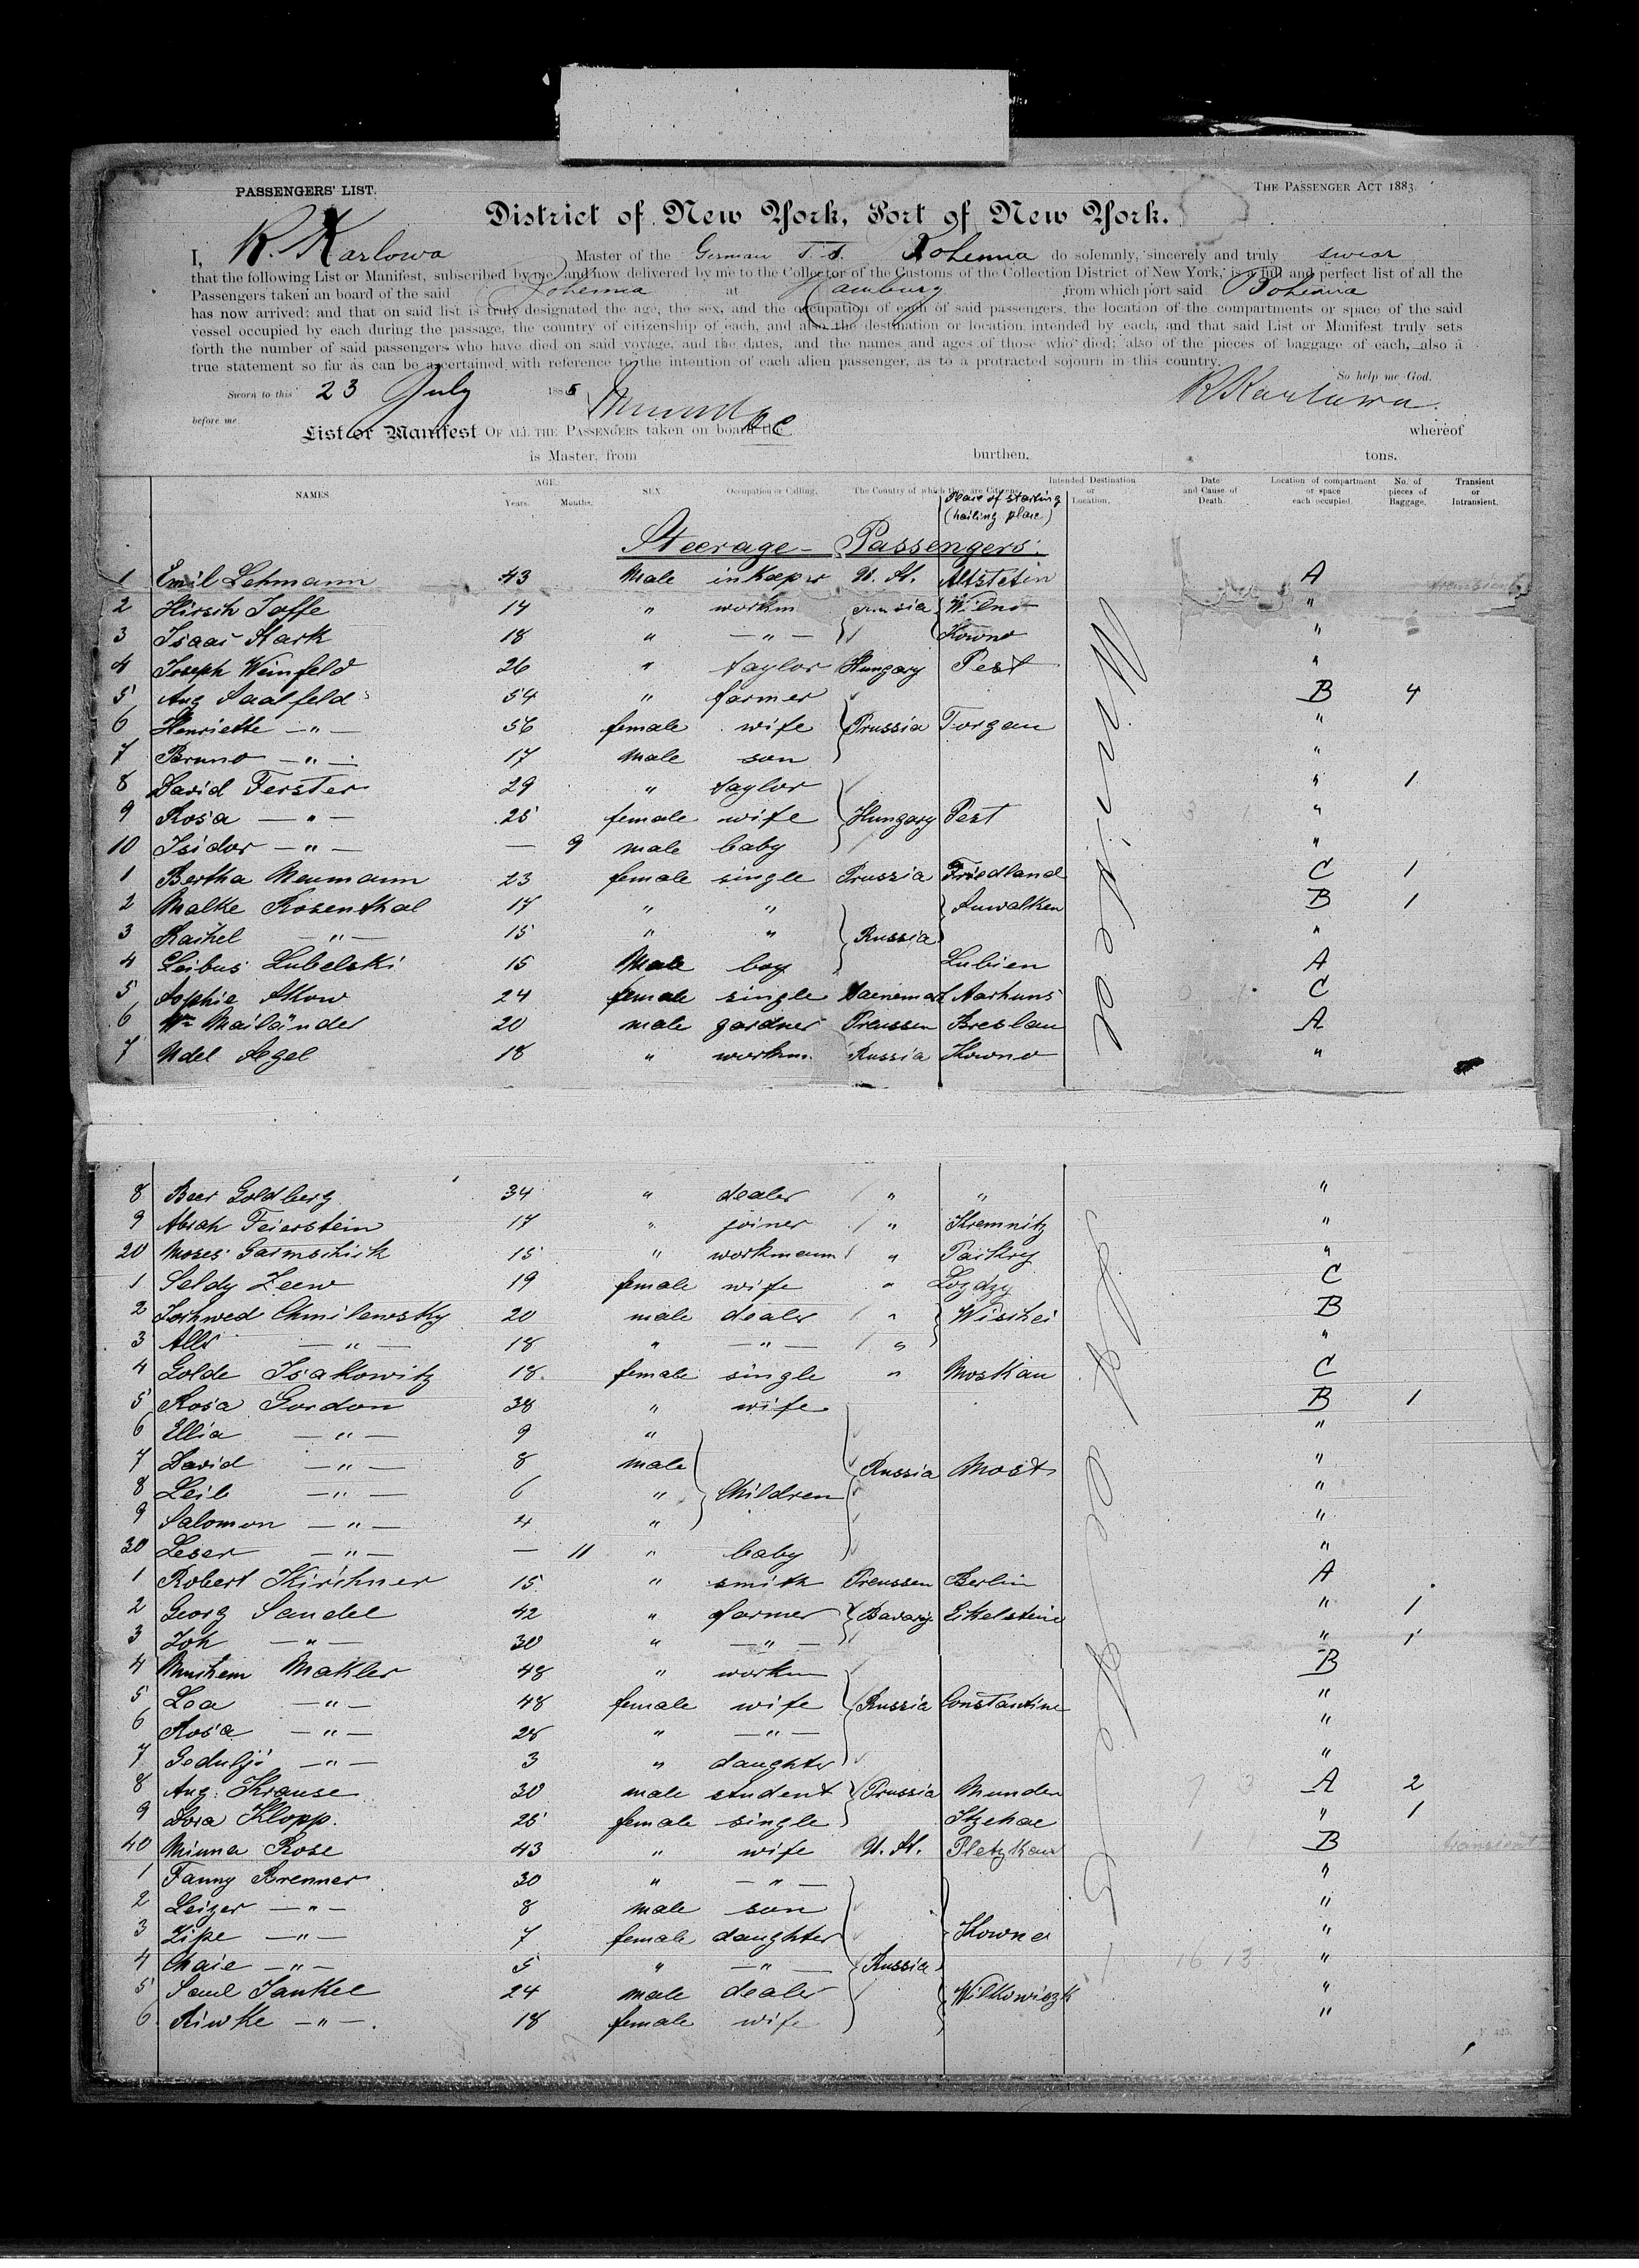 PASSENGERS' LIST.
THE PASSENGER ACT 1883.
District of New York, Port of New York.
I, R. Karlowa Master of the German S. S. Bohemia do solemnly, sincerely and truly swear
that the following List or Manifest, subscribed by me, and now delivered by me to the Collector of the Customs of the Collection District of New York, is a full and perfect list of all the
Passengers taken an board of the said Bohemia at Hamburg from which port said Bohemia
has now arrived; and that on said list is truly designated the age, the sex, and the occupation of each of said passengers, the location of the compartments or space of the said
vessel occupied by each during the passage, the country of citizenship of each, and also the destination or location intended by each, and that said List or Manifest truly sets
forth the number of said passengers who have died on said voyage, and the dates, and the names and ages of those who died; also of the pieces of baggage of each, also a
true statement so far as can be ascertained with reference to the intention of each alien passenger, as to a protracted sojourn in this country.
So help me God.
Sworn to this 23 July 1885 R Karlowa.
before me
List or Manifest OF ALL THE PASSENGERS taken on board the whereof
is Master, from burthen, tons.
NAMES AGE. Years. Months. SEX Occupation or Calling. The Country of which they are Citizens. Place of starting (hailing place) Intended Destination or Location. Date and Cause of Death. Location of compartment or space each occupied. No. of pieces of Baggage. Transient or Intransient.
Steerage - Passengers.
1 Emil Lehmann 43 Male inkeeper U. St. Altstetin A transient
2 Hirsch Joffe 14 " workm Russia Wilno "
3 Isaac Stark 18 " — " — Kowno "
4 Joseph Weinfeld 26 " taylor Hungary Pest "
5 Aug Saalfeld 54 " farmer B 4
6 Henriette — " — 56 female wife Prussia Torgau "
7 Bruno — " — 17 male son "
8 David Ferster 29 " taylor " 1
9 Rosa — " — 25 female wife Hungary Pest "
10 Isidor — " — — 9 male baby "
1 Bertha Neumann 23 female single Prussia Friedland C 1
2 Malke Rosenthal 17 " " Suwalken B 1
3 Raihel — " — 15 " " Russia "
4 Leibus Lubelski 15 Male boy Lubien A
5 Sophie Skow 24 female single Daenemark Aarhuns C
6 Wm Mailänder 20 male gardner Preussen Breslau A
7 Udel Segel 18 " workm. Russia Kowno "
8 Beer Goldberg 34 " dealer " " "
9 Abrah Feierstein 17 " joiner " Kremnitz "
20 Moses Garmschick 15 " workmann " "
1 Seldy Zeew 19 female wife " Lozdzy C
2 Chmilewsky 20 male dealer " Wischei B
3 — " — 18 " — " — " "
4 Golde Isakowitz 18 female single " Moskau C
5 Rosa Gordon 38 " wife B 1
6 Ellia — " — 9 " "
7 David — " — 8 male Russia Most "
8 Leib — " — 6 " Children "
9 Salomon — " — 4 " "
30 Leser — " — — 11 " baby "
1 Robert Kirchner 15 " smith Preussen Berlin A
2 Georg Sandel 42 " farmer Bavaria " 1
3 Joh — " — 30 " — " — " 1
4 Makler 48 " workm B
5 Lea — " — 48 female wife Russia Constantine "
6 Rosa — " — 28 " — " — "
7 — " — 3 " daughter "
8 Aug. Krause 30 male student Prussia Munden A 2
9 Dora Klopp. 25 female single Itzehoe " 1
40 Minna Rose 43 " wife U. St. Pletzkau B transient
1 Fanny Brenner 30 " — " — "
2 Leizer — " — 8 male son "
3 Zipe — " — 7 female daughter Kowno "
4 Chaie — " — 5 " — " — Russia "
5 Saul Jankel 24 male dealer Wilkowiszk "
6 Riwke — " — 18 female wife "